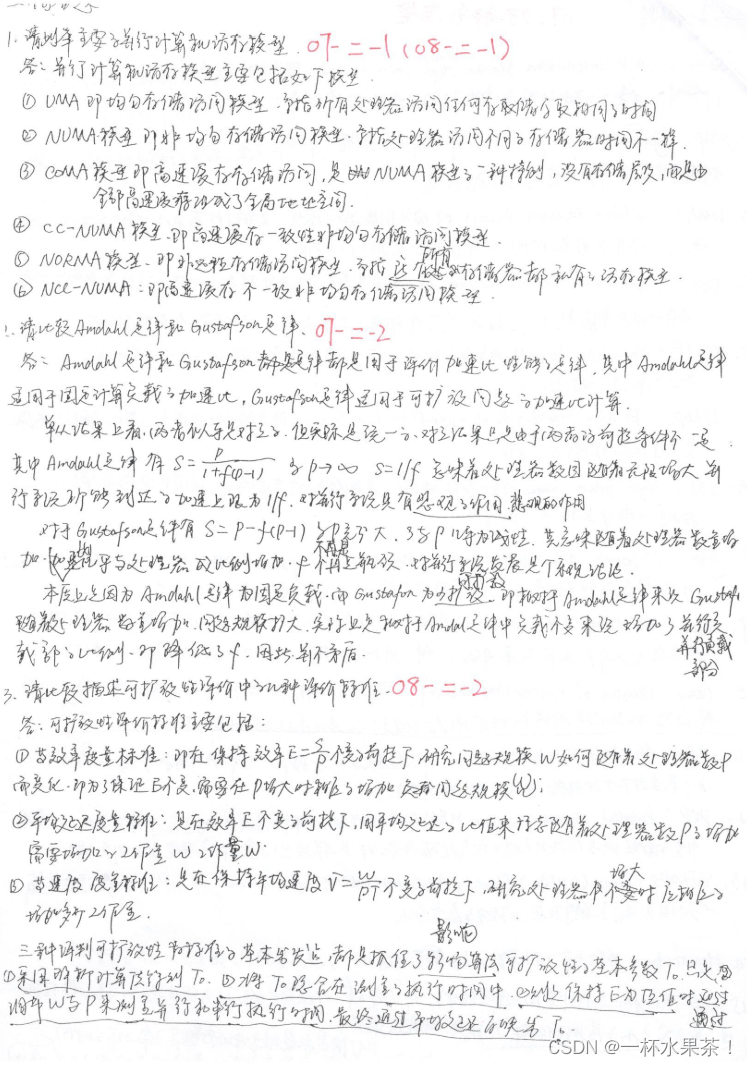 1. 请列举主要的并行计算机访存模型. 07-二-1 (08-二-1)
答: 并行计算机访存模型主要包括如下模型.
① UMA 即均匀存储访问模型. 是指所有处理器访问任何存储字取相同的时间
② NUMA模型即非均匀存储访问模型. 是指处理器访问不同的存储器时间不一样.
③ COMA模型即高速缓存存储访问, 是NUMA模型的一种特例, 没有存储层次, 而是由
全部高速缓存组成了全局地址空间.
④ CC-NUMA模型. 即高速缓存一致性非均匀存储访问模型.
⑤ NORMA模型. 即非远程存储访问模型. 是指所有存储器都私有的访存模型.
⑥ NCC-NUMA: 即高速缓存不一致非均匀存储访问模型.
2. 请比较Amdahl定律和Gustafson定律. 07-二-2
答: Amdahl定律和Gustafson定律都是用于评价加速比性能的定律, 其中Amdahl定律
适用于固定计算负载的加速比, Gustafson定律适用于可扩放问题的加速比计算.
单从结果上看, 两者似乎是对立的, 但实际是统一的. 对立结果只是由于两者的前提条件不一造.
其中Amdahl定律有 S=p/(1+f(p-1)) 当p→∞ S=1/f 意味着处理器数目随着无限增大 并
行系统所能到达的加速上限为1/f. 对并行系统具有悲观的作用
对于Gustafson定律有 S=p-f(p-1) 当p充分大, S与p几乎为线性. 其意味随着处理器数量增
加, 加速几乎与处理器成比例增加. f不再是瓶颈. 对并行系统发展是个乐观结论.
本质上是因为Amdahl定律为固定负载. 而Gustafson为可扩放. 即相对于Amdahl定律来说Gustafson
随着处理器数量增加, 问题规模扩大. 实际上是相对于Amdahl定律中负载不变来说增加了并行负
载部分比例. 即降低了f. 因此并不矛盾. 并行负载部分
3. 请比较描述可扩放性评价中的几种评价标准. 08-二-2
答: 可扩放性评价标准主要包括:
① 等效率度量标准: 即在保持效率E=S/P不变的前提下, 研究问题规模W如何随着处理器数P
而变化. 即为了保证E不变, 需要在P增大时相应的增加问题规模(W);
② 平均延迟度量标准: 是在效率E不变的前提下, 用平均延迟的比值来标志随着处理器数P的增加
需要增加的工作量W.
③ 等速度度量标准: 是在保持平均速度V=W/PT不变的前提下. 研究处理器增大时应相应的
增加多少工作量.
三种评判可扩放性的标准的基本出发点, 都是抓住了影响算法可扩放性的基本参数T₀. 只是
①采用解析计算法得到T₀. ②将T₀隐含在测量的执行时间中. ③则是保持E为恒值时通过
调节W与P来测量并行和串行执行时间. 最终通过平均延迟反映出T₀.
CSDN @一杯水果茶！